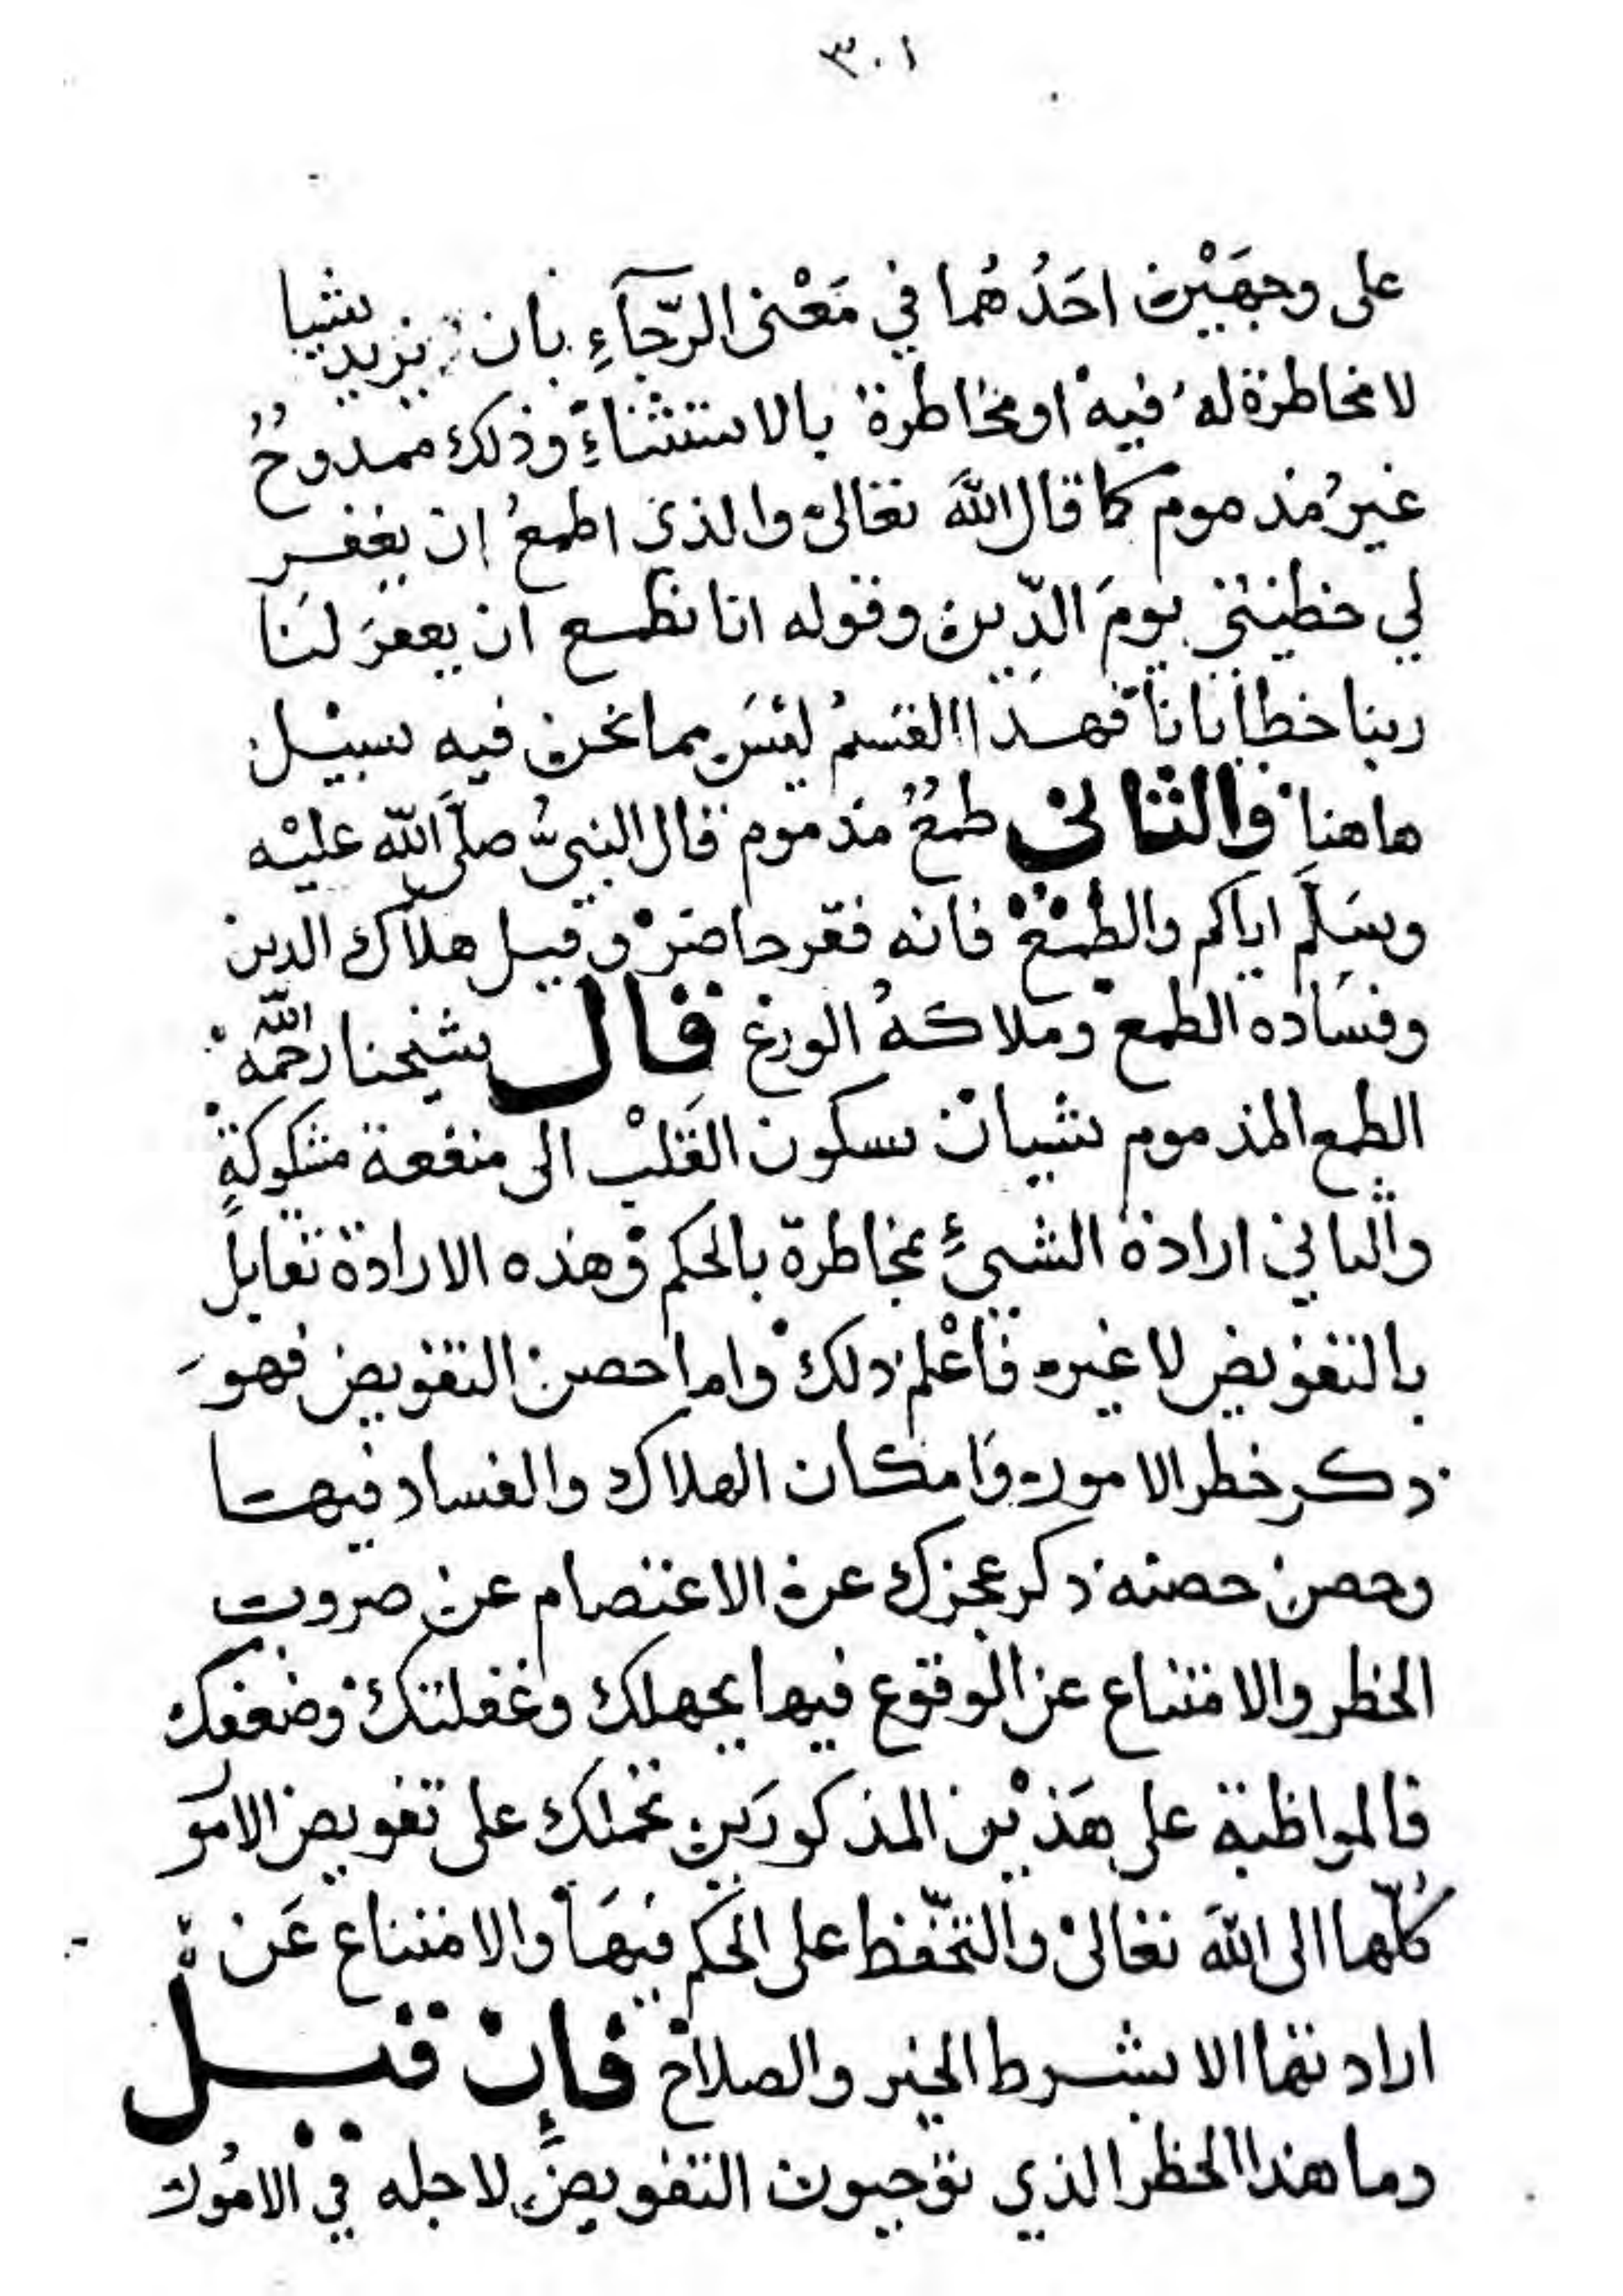 ٣٠١
على وجهَيْن احَدُهُما في مَعْنى الرّجآءِ بأن يزيد شيا
لا مخاطرة له فيه او مخاطرة بالاستثناءِ وذلك ممدوحٌ
غيرُ مذموم كما قال اللهَ تعالى والذي اطمعُ ان يغفر
لي خطيئتى يومَ الدّين وقوله انا نطمع ان يعفرَ لنَا
ربنا خطايانا فهذا القسمُ ليْسَ مما نحن فيه سبيْل
هاهنا والثانى طمعٌ مذموم قال النبىُّ صلّى الله عليْه
وسَلّم اياكم والطمْع فانه فقر حاضرْ و قيل هلاك الدين
وفسَاده الطمع وملاكهُ الورع قال شيخنا رحمَه الله
الطمع المذموم شيئان سكون القَلبْ الى منفعة مشكوكةٍ
والثاني ارادة الشيءِ بمخاطرة بالحكم وهذه الارادة تقابل
بالتفويض لا غيره فاعْلم ذلك واما حصن التفويض فهوَ
ذكر خطر الامور وَامكان الهلاك والفساد فيها
وحصن حصنه ذكر عجزك عن الاعتصام عن ضروب
الخطر والامتناع عن الوقوع فيها بجهلك وغفلتك وضعفك
فالمواظبة على هَذيْن المذكورَين تحملك على تفويض الامور
كُلّها الى اللهَ تعالى والتحّفظ على الحكم فيهَا والامتناع عَن
ارادتها الا بشرط الخير والصلاح فإن قيل
وما هذا الخطر الذي توجبون التفويضَ لاجله في الامُور